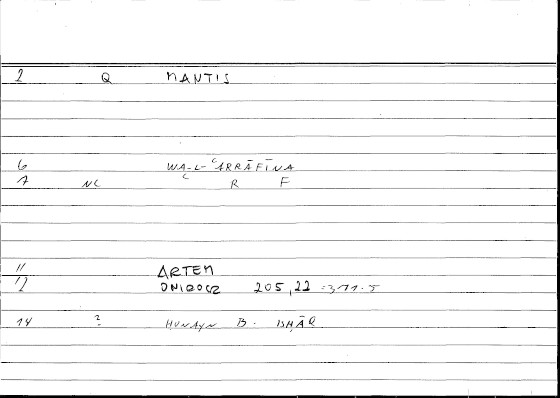 2 Q MANTIS
6 WA-L-ʿARRĀFĪNA
7 NC ʿ R F
11 ARTEM
12 ONIROCR 205,22 = 371.5
14 ? HUNAYN B. ISHĀQ